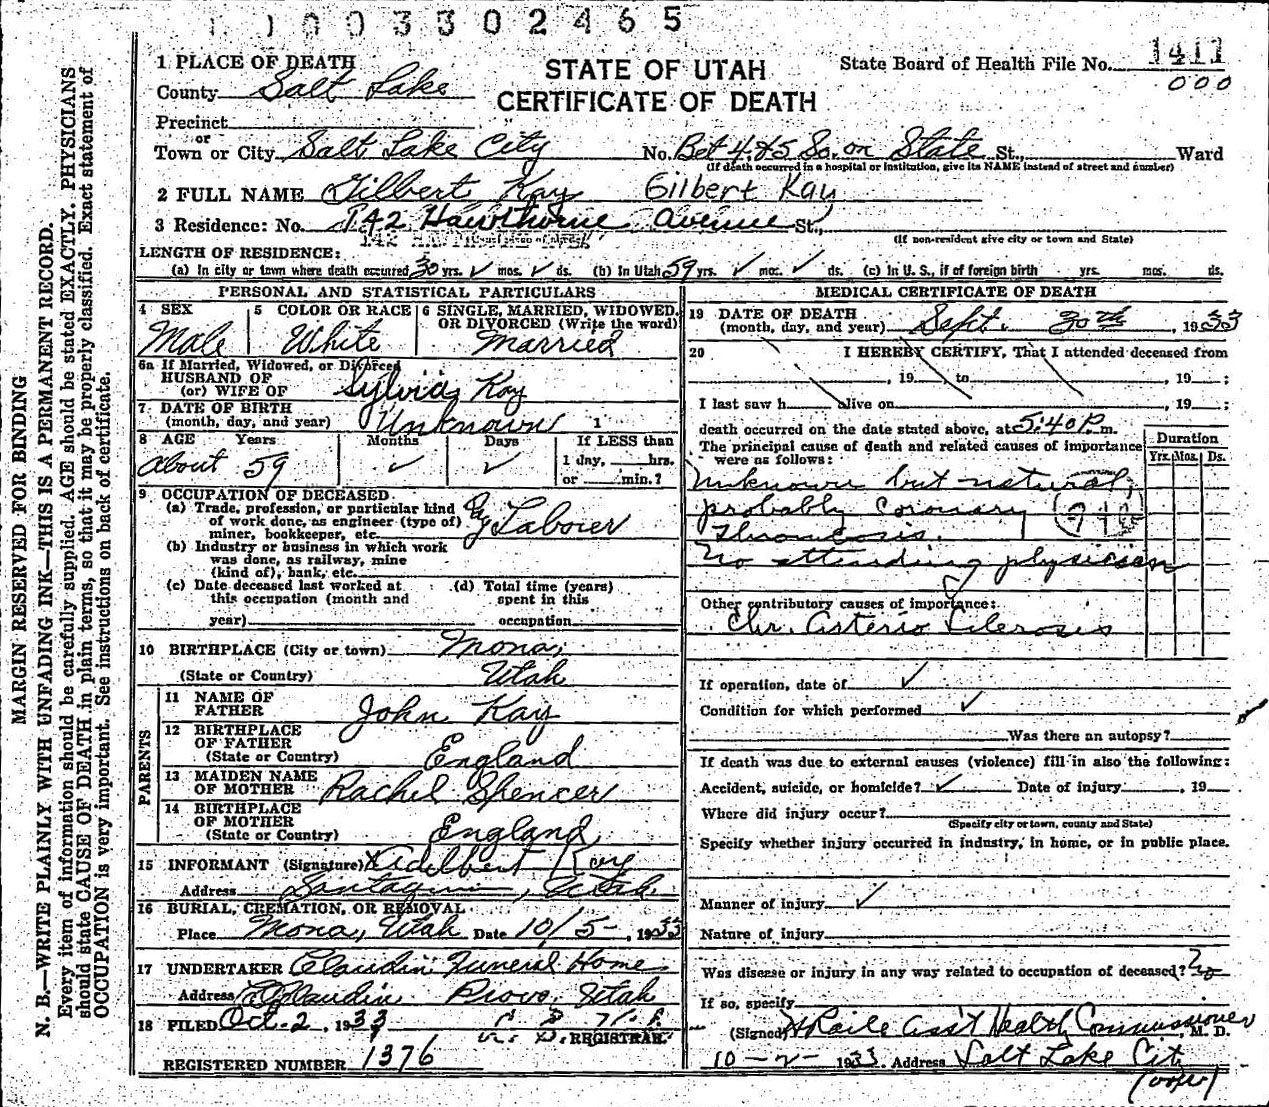 1 1 0 0 3 3 0 2 4 6 5
1 PLACE OF DEATH
County Salt Lake
STATE OF UTAH
CERTIFICATE OF DEATH
State Board of Health File No. 1411
000
Precinct
or
Town or City Salt Lake City No. Bet 4 & 5 So. on State St., Ward
(If death occurred in a hospital or institution, give its NAME instead of street and number)
2 FULL NAME Gilbert Kay Gilbert Kay
3 Residence: No. 142 Hawthorne Avenue St.,
(If non-resident give city or town and State)
LENGTH OF RESIDENCE:
(a) In city or town where death occurred 30 yrs. ✓ mos. ✓ ds. (b) In Utah 59 yrs. ✓ mos. ✓ ds. (c) In U. S., if of foreign birth yrs. mos. ds.
PERSONAL AND STATISTICAL PARTICULARS
4 SEX
Male
5 COLOR OR RACE
White
6 SINGLE, MARRIED, WIDOWED, OR DIVORCED (Write the word)
Married
6a If Married, Widowed, or Divorced
HUSBAND OF
(or) WIFE OF Sylvia Kay
7 DATE OF BIRTH
(month, day, and year) Unknown 1
8 AGE Years Months Days If LESS than
About 59 ✓ ✓ 1 day, hrs.
or min.?
9 OCCUPATION OF DECEASED
(a) Trade, profession, or particular kind
of work done, as engineer (type of)
miner, bookkeeper, etc. Laborer
(b) Industry or business in which work
was done, as railway, mine
(kind of), bank, etc.
(c) Date deceased last worked at
this occupation (month and
year)
(d) Total time (years)
spent in this
occupation
10 BIRTHPLACE (City or town) Mona,
(State or Country) Utah
PARENTS
11 NAME OF
FATHER John Kay
12 BIRTHPLACE
OF FATHER
(State or Country) England
13 MAIDEN NAME
OF MOTHER Rachel Spencer
14 BIRTHPLACE
OF MOTHER
(State or Country) England
15 INFORMANT (Signature) X Adelbert Kay
Address Santaquin, Utah
16 BURIAL, CREMATION, OR REMOVAL
Place Mona, Utah Date 10/5-, 1933
17 UNDERTAKER Claudin Funeral Home
Address Claudin. Provo, Utah
18 FILED Oct. 2, 1933
REGISTRAR.
REGISTERED NUMBER 1376
MEDICAL CERTIFICATE OF DEATH
19 DATE OF DEATH
(month, day, and year) Sept. 30th, 1933
20 I HEREBY CERTIFY, That I attended deceased from
, 19 to , 19 ;
I last saw h alive on , 19 ;
death occurred on the date stated above, at 5:40 P.m.
The principal cause of death and related causes of importance
were as follows:
Duration
Yrs. Mos. Ds.
Unknown but natural,
probably Coronary
Thrombosis.
No attending physician
Other contributory causes of importance:
Chr. Arterio Sclerosis
If operation, date of ✓
Condition for which performed ✓
Was there an autopsy?
If death was due to external causes (violence) fill in also the following:
Accident, suicide, or homicide? ✓ Date of injury , 19
Where did injury occur?
(Specify city or town, county and State)
Specify whether injury occurred in industry, in home, or in public place.
Manner of injury ✓
Nature of injury
Was disease or injury in any way related to occupation of deceased? No
If so, specify
(Signed) Raile Ass't Health Commissioner, M. D.
10-2-1933. Address Salt Lake City
(over)
MARGIN RESERVED FOR BINDING
N. B.—WRITE PLAINLY WITH UNFADING INK—THIS IS A PERMANENT RECORD.
Every item of information should be carefully supplied. AGE should be stated EXACTLY. PHYSICIANS
should state CAUSE OF DEATH in plain terms, so that it may be properly classified. Exact statement of
OCCUPATION is very important. See instructions on back of certificate.